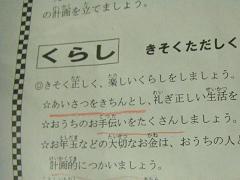 の計画を立てましょう。
くらし きそくただしく
◎きそく正しく、楽しいくらしをしましょう。
☆あいさつをきちんとし、礼ぎ正しい生活を
☆おうちのお手伝いをたくさんしましょう。
☆お年玉などの大切なお金は、おうちの人と
計画的につかいましょう。